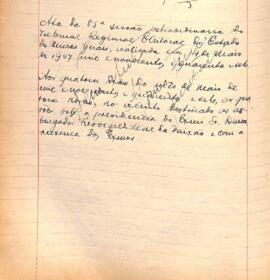 Ata da 85ª sessão extraordinaria do
Tribunal Regional Eleitoral do Estado
de Minas Gerais, realizada em de Maio
de 1947 mil e novecentos e quarenta e sete.
Aos quatorze dias do mês de maio de
mil e novecentos e quarenta e sete, as
horas, no recinto destinado as
sob a presidencia do Exmo Sr. Desem
bargador da Paixão e com a
presença dos Exmos